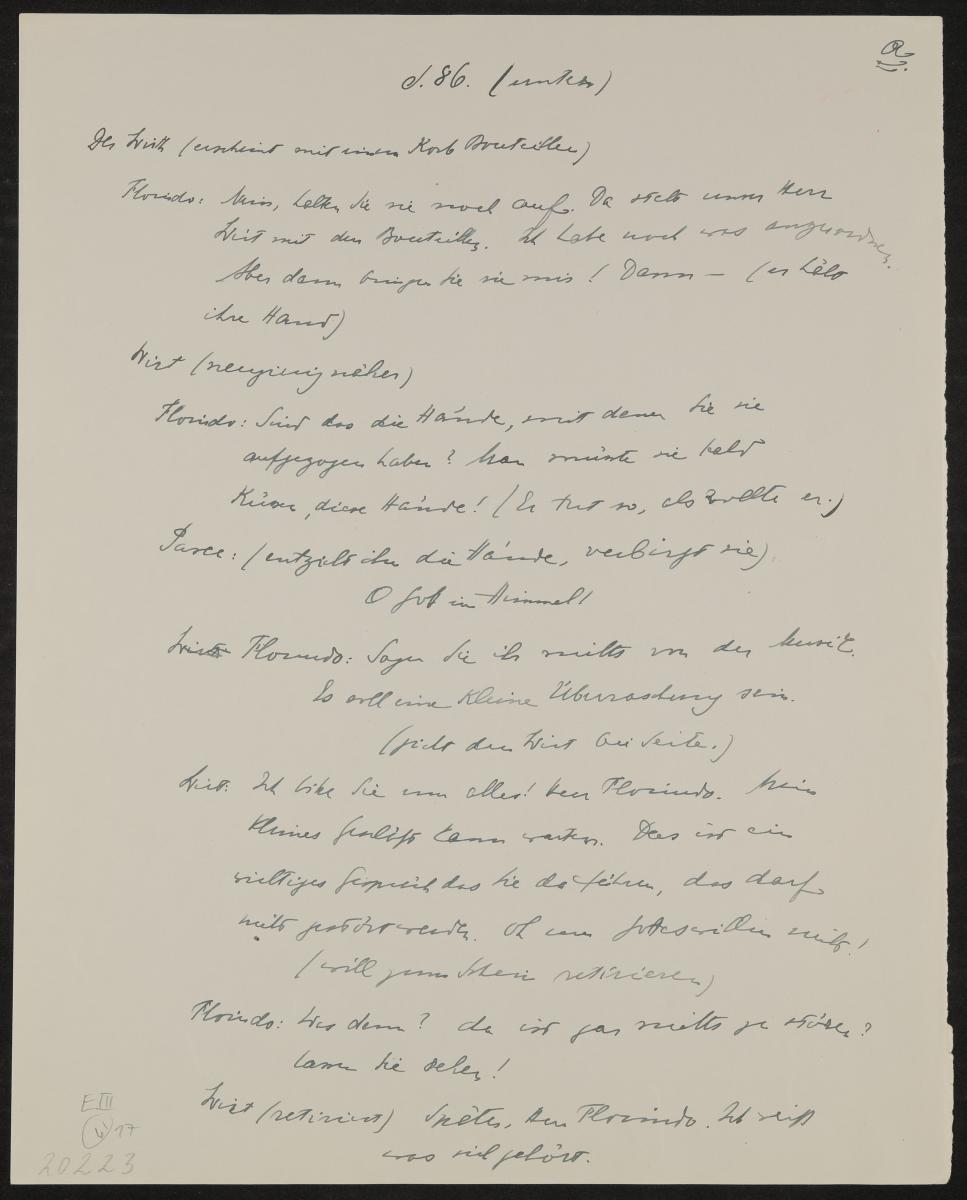 a
S. 86. (unten)
Der Wirth (erscheint mit einem Korb Bouteillen)
Florindo: Nein, halten Sie sie noch auf. Da steht unser Herr
Wirt mit den Bouteillen. Ich habe noch was anzuordnen.
Aber dann bringen Sie sie mir! Dann — (er hält
ihre Hand)
Wirt (neugierig näher)
Florindo: Sind das die Hände, mit denen Sie sie
aufgezogen haben? Man müsste sie bald
küssen, diese Hände! (Er tut so, als wollte er.)
Pasca: (entzieht ihm die Hände, verbirgt sie)
O Gott im Himmel!
Wirt Florindo: Sagen Sie ihr nichts von der Musik.
Es soll eine kleine Überraschung sein.
(zieht den Wirt bei Seite.)
Wirt: Ich bitte Sie um alles! Herr Florindo. Mein
kleines Geschäft kann warten. Das ist ein
wichtiges Gespräch das Sie da führen, das darf
nicht gestört werden. Oh um Gotteswillen nicht!
(will zum Schein retirieren)
Florindo: Was denn? da ist gar nichts zu stören?
Lassen Sie sehen!
Wirt (retiriert) Später, Herr Florindo. Ich weiß
was sich gehört.
E III
4) 17
20223